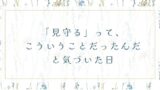 「見守る」って、
こういうことだったんだ
と気づいた日